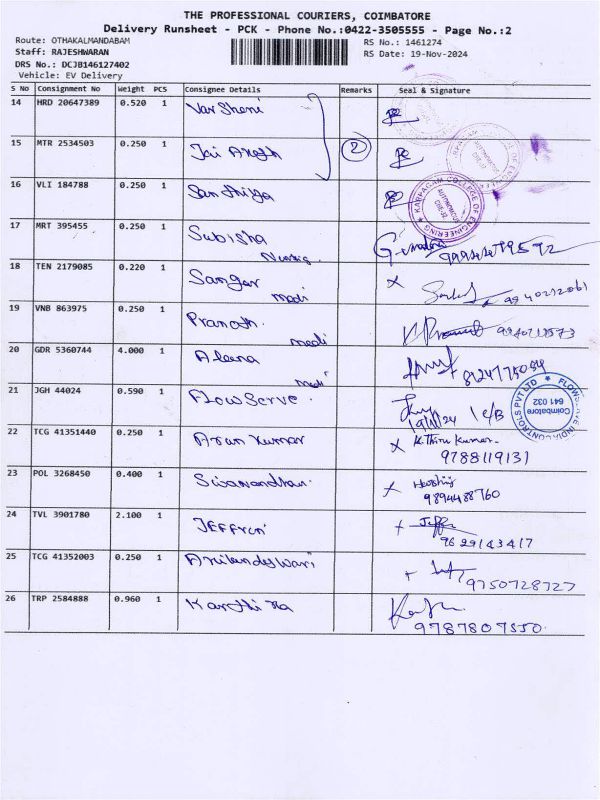 THE PROFESSIONAL COURIERS, COIMBATORE
Delivery Runsheet - PCK - Phone No.:0422-3505555 - Page No.:2
Route: OTHAKALMANDABAM
RS No.: 1461274
Staff: RAJESHWARAN
RS Date: 19-Nov-2024
DRS No.: DCJB146127402
Vehicle: EV Delivery
S No Consignment No Weight PCS Consignee Details Remarks Seal & Signature
14 HRD 20647389 0.520 1 Varsheni
15 MTR 2534503 0.250 1 Jai 2
16 VLI 184788 0.250 1 Santhiya
KARPAGAM COLLEGE OF ENGINEERING
AUTONOMOUS
CBE-32
17 MRT 395455 0.250 1 Subisha
18 TEN 2179085 0.220 1 Sangar
medi
19 VNB 863975 0.250 1 Pranath
medi
20 GDR 5360744 4.000 1 Aleena
medi
21 JGH 44024 0.590 1 FlowServe 19/11/24
Coimbatore
641 032
22 TCG 41351440 0.250 1 Arun Kumar K.Thiru Kumar
9788119131
23 POL 3268450 0.400 1 Sivanandhan
9894488760
24 TVL 3901780 2.100 1 Jeffron
9629143417
25 TCG 41352003 0.250 1 9750728727
26 TRP 2584888 0.960 1 Karthika
9787807550